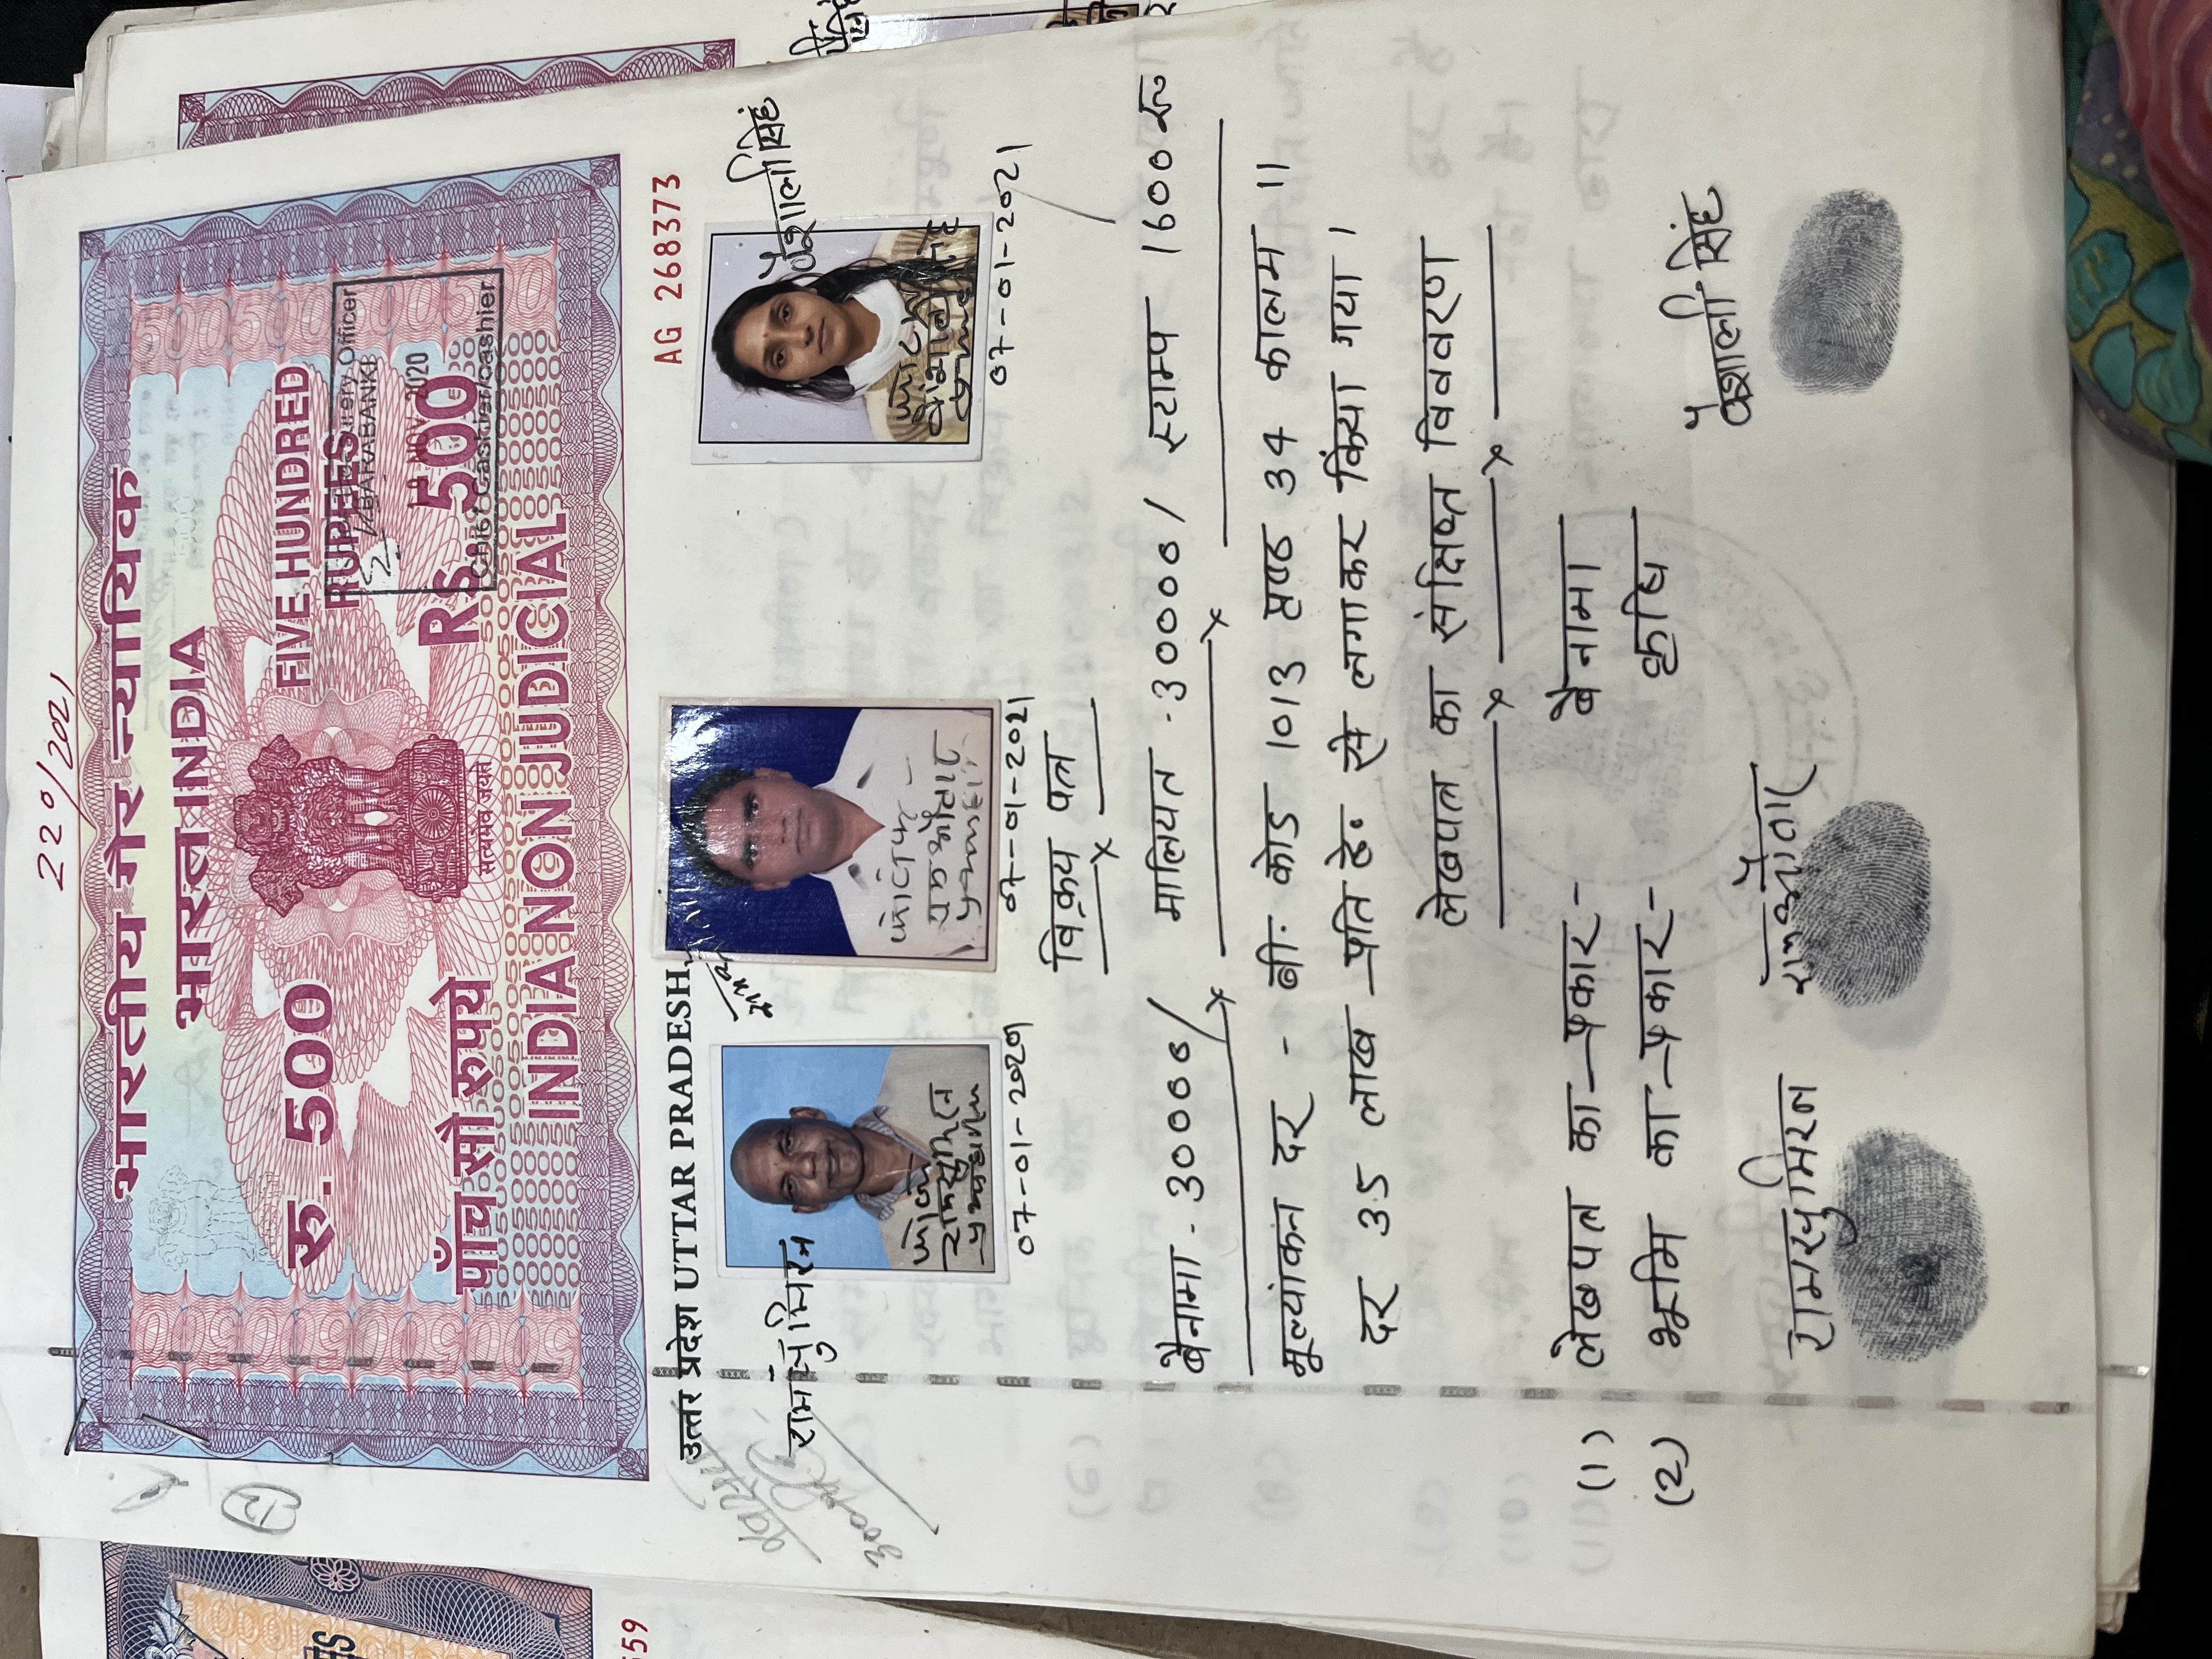 220/2021
भारतीय गैर न्यायिक
भारत INDIA
रु. 500
FIVE HUNDRED
RUPEES
पाँच सौ रुपये
Rs. 500
सत्यमेव जयते
INDIA NON JUDICIAL
Treasury Officer
BARABANKI
NOV 2020
Chief Cashier/Cashier
उत्तर प्रदेश UTTAR PRADESH
AG 268373
रामसुमिरन
वैशाली सिंह
फोटो
रामसुमिरन
07-01-2021
07-01-2021
07-01-2021
विक्रय पत्र
बैनामा - 30000/ मालियत - 30000/ स्टाम्प 1600 रू०
मूल्यांकन दर - बी. कोड 1013 पृष्ठ 34 कालम 11
दर 35 लाख प्रति हे. से लगाकर किया गया।
लेखपत्र का संक्षिप्त विववरण
(1) लेखपत्र का प्रकार- बैनामा
(2) भूमि का प्रकार- कृषि
रामसुमिरन
रामऔतार
वैशाली सिंह
559